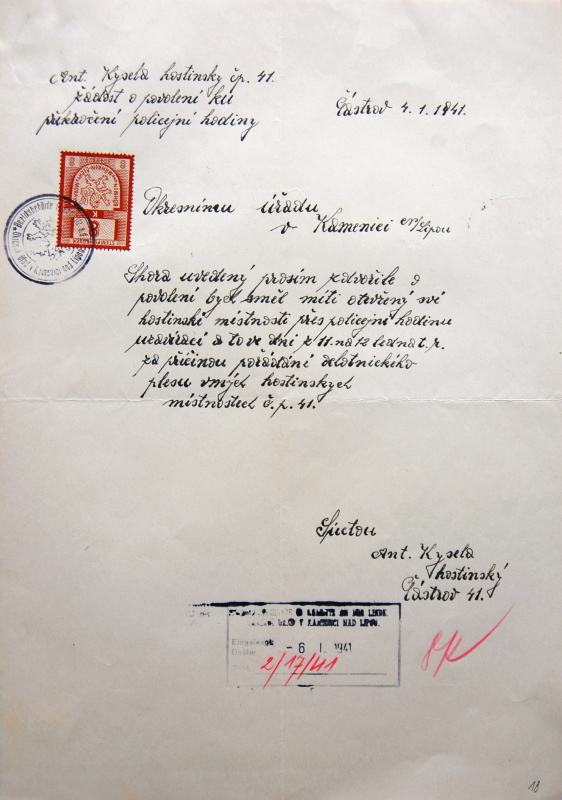 Ant. Kysela hostinsky čp. 41.
žádost o povolení ku
překročení policejní hodiny
Částrov 4.1.1941.
Okresnímu úřadu
v Kamenici n/Lipou
Shora uvedený prosím zdvořile o
povolení bych směl míti otevřený své
hostinské místnosti přes policejní hodinu
uzavírací a to ve dni z 11. na 12 ledna t.r.
za příčinou pořádání dělotnickího
plesu v mých hostinskych
místnostech č.p. 41.
S úctou
Ant. Kysela
hostinský
Částrov 41.
OKRESNÍ ÚŘAD V KAMENICI NAD LIPOU.
Eingelangt
Došlo:
- 6 I. 1941
2/17/41
18